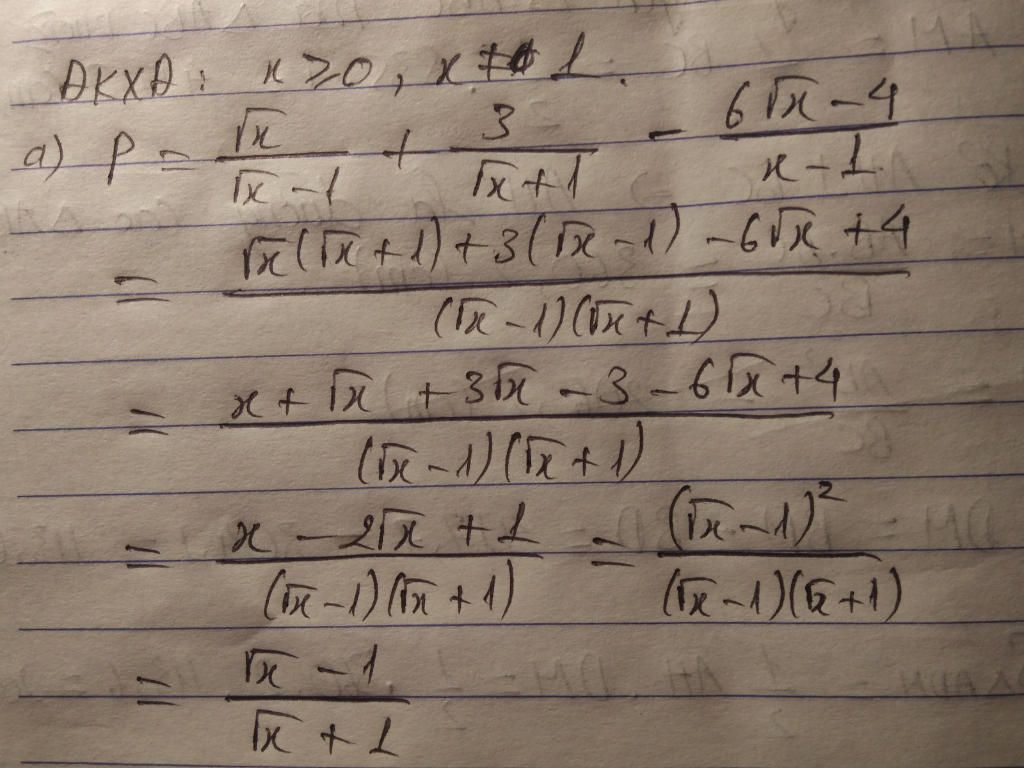 ĐKXĐ: x ≥ 0, x ≠ 1.
a) P = √x/(√x - 1) + 3/(√x + 1) - (6√x - 4)/(x - 1)
= (√x(√x + 1) + 3(√x - 1) - 6√x + 4)/((√x - 1)(√x + 1))
= (x + √x + 3√x - 3 - 6√x + 4)/((√x - 1)(√x + 1))
= (x - 2√x + 1)/((√x - 1)(√x + 1)) = (√x - 1)²/((√x - 1)(√x + 1))
= (√x - 1)/(√x + 1)